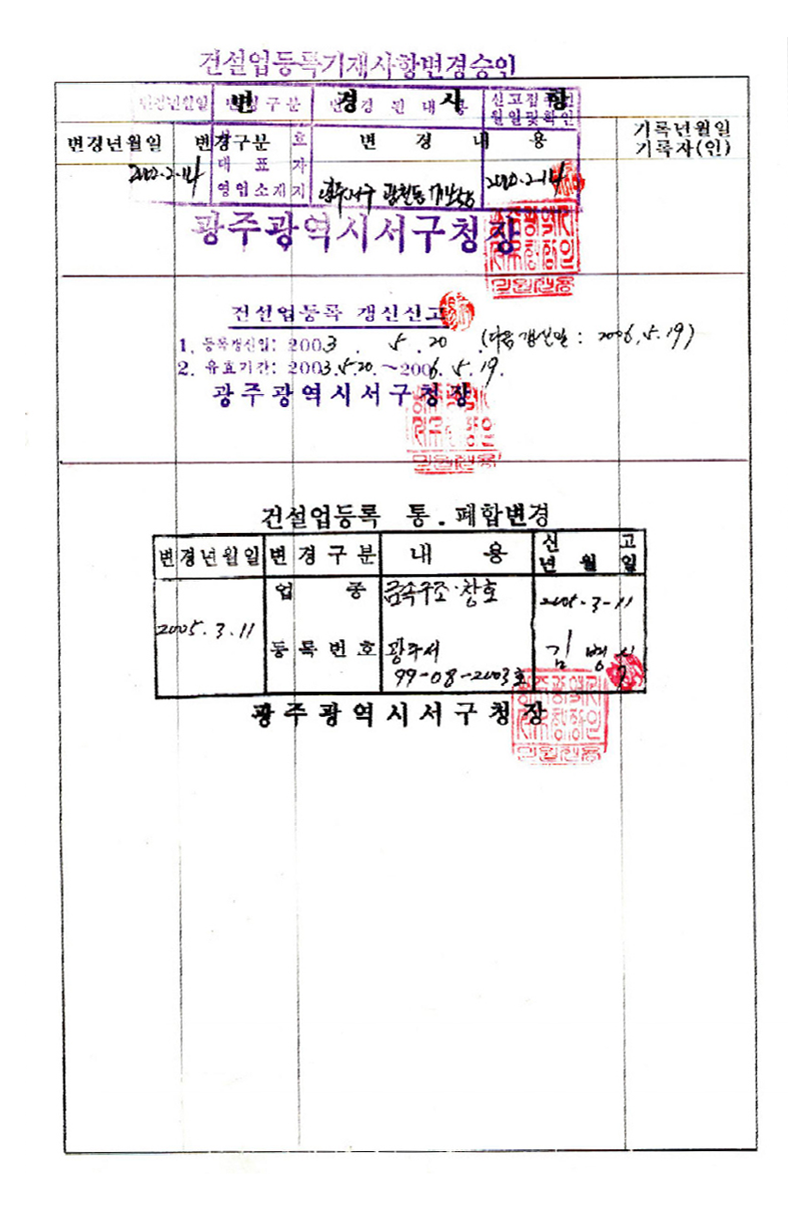 건설업등록기재사항변경승인
변 경 사 항
변경년월일 변경구분 변경된내용 신고접수인
월일및확인
변경년월일 변경구분 변 경 내 용 기록년월일
기록자(인)
호
대 표 자
영업소재지 광주서구 광천동
광주광역시서구청장
건설업등록 갱신신고
1. 등록갱신일: 2003. 5. 20. (다음 갱신일 : 2006. 5. 19)
2. 유효기간: 2003. 5. 20. ~ 2006. 5. 19.
광주광역시서구청장
건설업등록 통.폐합변경
변경년월일 변경구분 내 용 신 고
년 월 일
업 종 금속구조·창호 2005-3-11
2005. 3. 11
등록번호 광주서 김병
99-08-2003호
광주광역시서구청장